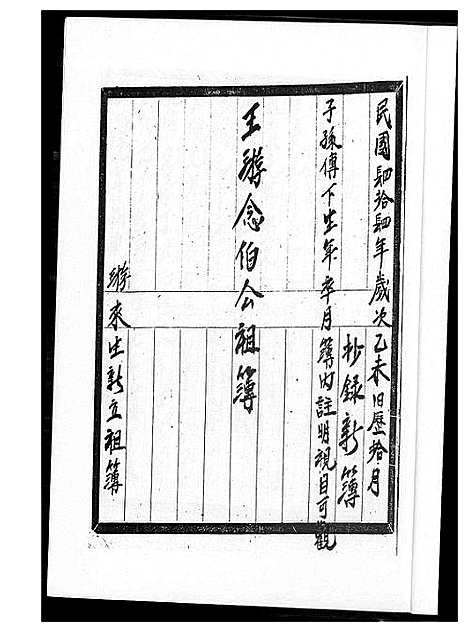 民國肆拾肆年歲次乙未旧歷拾月
抄錄新簿
子孫傳下生年卒月簿內註明親目可觀
王游念伯公祖簿
游來生新立祖簿